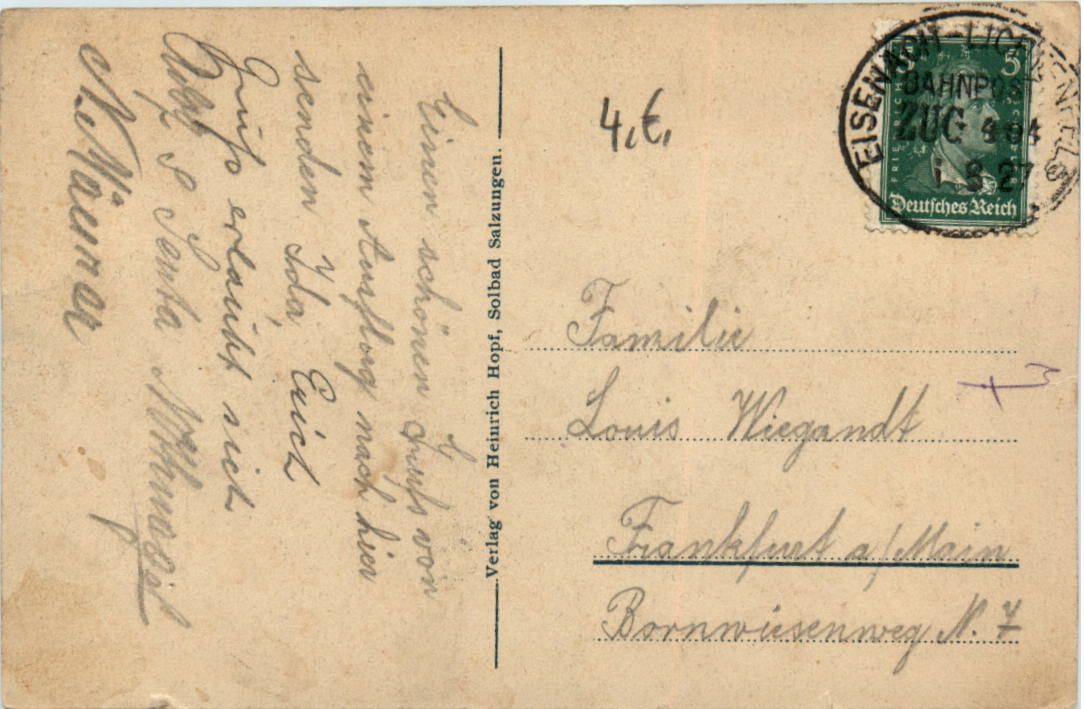 EISENACH-LICHTENFELS
BAHNPOST
ZUG
27
5
Deutsches Reich
4,€,
Einen schönen Gruß von
einem Ausflug nach hier
senden Ida, Erich
Gruß erlaubt sich
Verlag von Heinrich Hopf, Solbad Salzungen.
Familie
Louis Wiegandt
Frankfurt a/Main
Bornwiesenweg N. 7